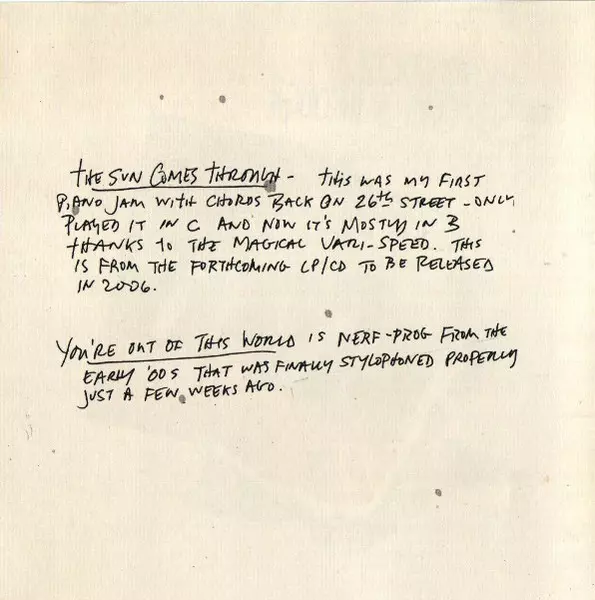 THE SUN COMES THROUGH - THIS WAS MY FIRST
PIANO JAM WITH CHORDS BACK ON 26th STREET - ONLY
PLAYED IT IN C AND NOW IT'S MOSTLY IN B
THANKS TO THE MAGICAL VARI-SPEED. THIS
IS FROM THE FORTHCOMING LP/CD TO BE RELEASED
IN 2006.
YOU'RE OUT OF THIS WORLD IS NERF-PROG FROM THE
EARLY '00S THAT WAS FINALLY STYLOPHONED PROPERLY
JUST A FEW WEEKS AGO.